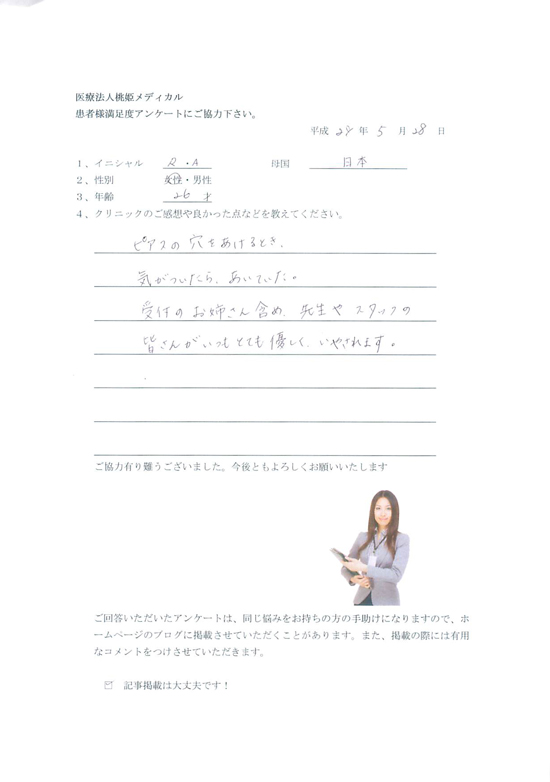 医療法人桃姫メディカル
患者様満足度アンケートにご協力下さい。
平成 29 年 5 月 28 日
1、イニシャル R・A 母国 日本
2、性別 女性・男性
3、年齢 26 才
4、クリニックのご感想や良かった点などを教えてください。
ピアスの穴をあけるとき、
気がついたら、あいていた。
受付のお姉さん含め、先生やスタッフの
皆さんがいつもとても優しく、いやされます。
ご協力有り難うございました。今後ともよろしくお願いいたします
ご回答いただいたアンケートは、同じ悩みをお持ちの方の手助けになりますので、ホ
ームページのブログに掲載させていただくことがあります。また、掲載の際には有用
なコメントをつけさせていただきます。
☑ 記事掲載は大丈夫です！